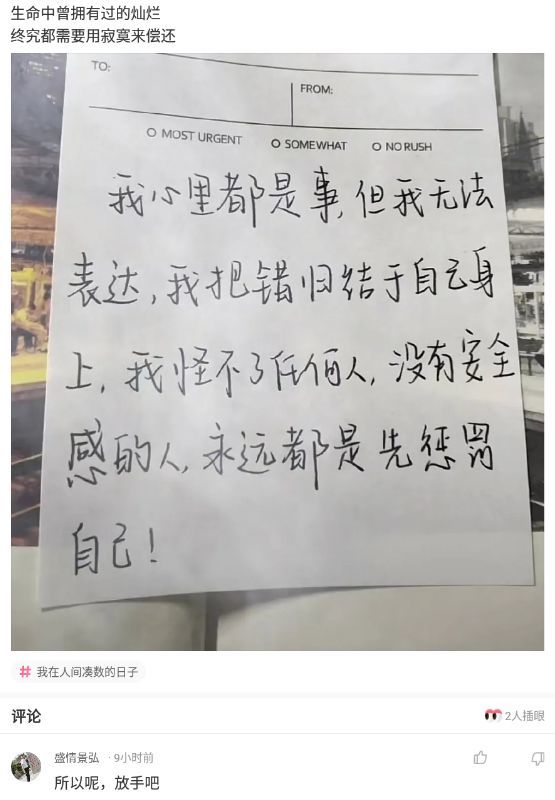 生命中曾拥有过的灿烂
终究都需要用寂寞来偿还
TO:
FROM:
MOST URGENT
SOMEWHAT
NO RUSH
我心里都是事,但我无法
表达,我把错归结于自己身
上,我怪不了任何人,没有安全
感的人,永远都是先惩罚
自己!
# 我在人间凑数的日子
评论
2人插眼
盛情景弘 · 9小时前
所以呢，放手吧